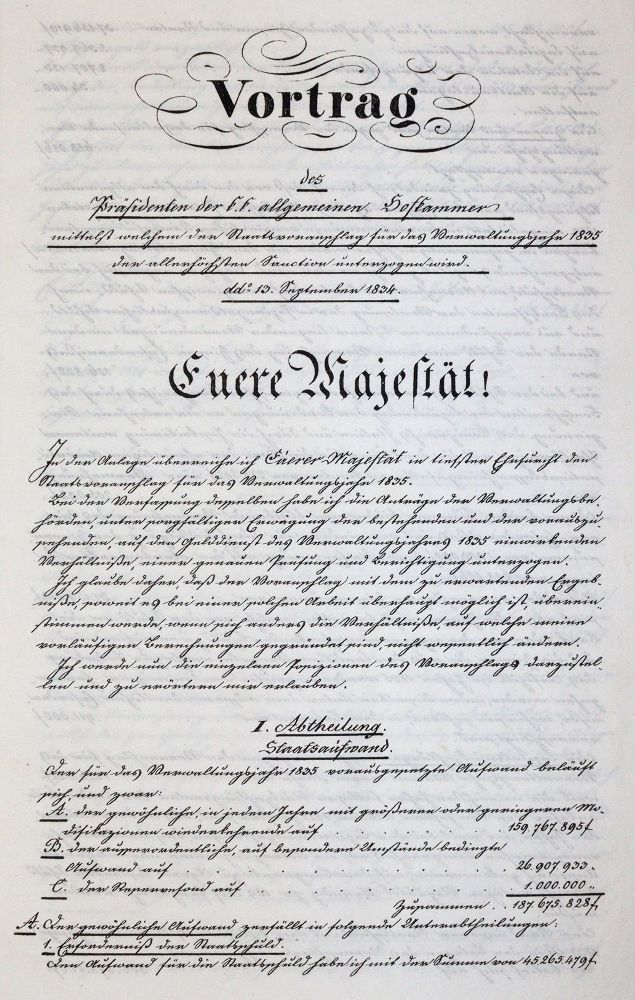 Vortrag
des
Präsidenten der k. k. allgemeinen Hofkammer
mittelst welchem der Staatsvoranschlag für das Verwaltungsjahr 1835
der allerhöchsten Sanction unterzogen wird.
ddo 13. September 1834.
Euere Majestät!
In der Anlage überreiche ich Euerer Majestät in tiefster Ehrfurcht den
Staatsvoranschlag für das Verwaltungsjahr 1835.
Bei der Verfassung desselben habe ich die Anträge der Verwaltungsbe-
hörden, unter sorgfältiger Erwägung der bestehenden und der vorauszu-
sehenden, auf den Gelddienst des Verwaltungsjahres 1835 einwirkenden
Verhältniße, einer genauen Prüfung und Berichtigung unterzogen.
Ich glaube daher, daß der Voranschlag mit dem zu erwartenden Ergeb-
niße, soweit es bei einer solchen Arbeit überhaupt möglich ist, überein-
stimmen werde, wenn sich anders die Verhältniße, auf welche meine
vorläufigen Berechnungen gegründet sind, nicht wesentlich ändern.
Ich werde nun die einzelnen Posizionen des Voranschlags darzustel-
len und zu erörtern mir erlauben.
I. Abtheilung.
Staatsaufwand.
Der für das Verwaltungsjahr 1835 vorausgesetzte Aufwand beläuft
sich, und zwar:
A. der gewöhnliche, in jedem Jahre mit größeren oder geringeren Mo-
difikazionen wiederkehrende auf . . . . 159.767.895 f
B. der ausserordentliche, auf besondere Umstände bedingte
Aufwand auf . . . . 26.907.933 "
C. der Reservefond auf . . . . 1.000.000 "
Zusammen . . 187.675.828 f
A. Der gewöhnliche Aufwand zerfällt in folgende Unterabtheilungen:
1. Erforderniß der Staatsschuld.
Den Aufwand für die Staatsschuld habe ich mit der Summe von 45,265.479 f